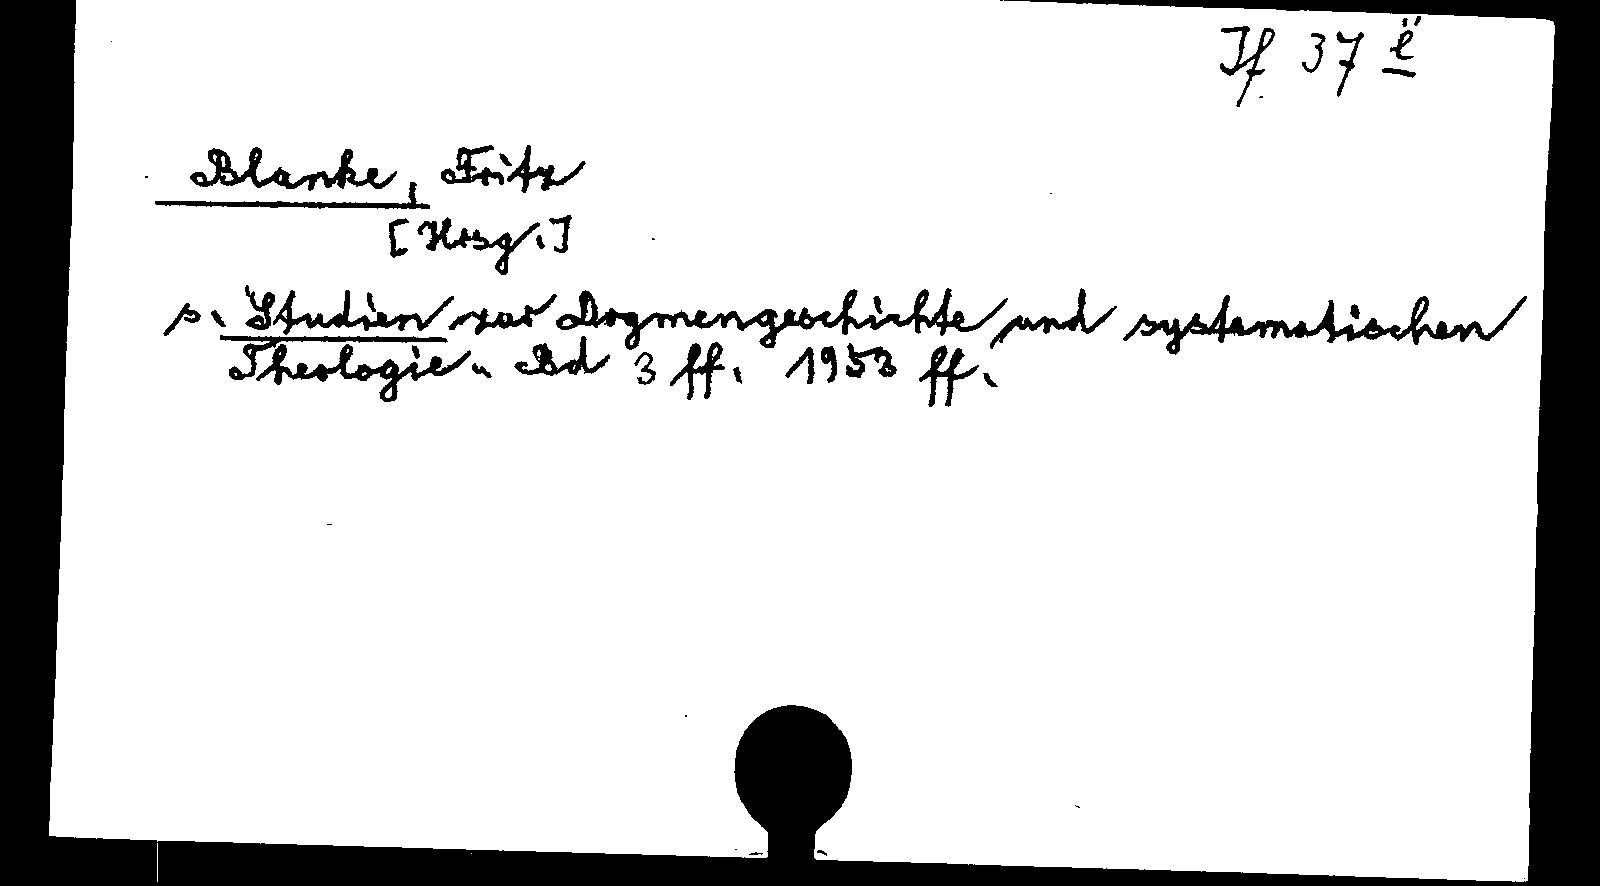 If 37 ë
Blanke, Fritz
[Hrsg.]
s. Studien zur Dogmengeschichte und systematischen
Theologie. Bd 3 ff. 1953 ff.